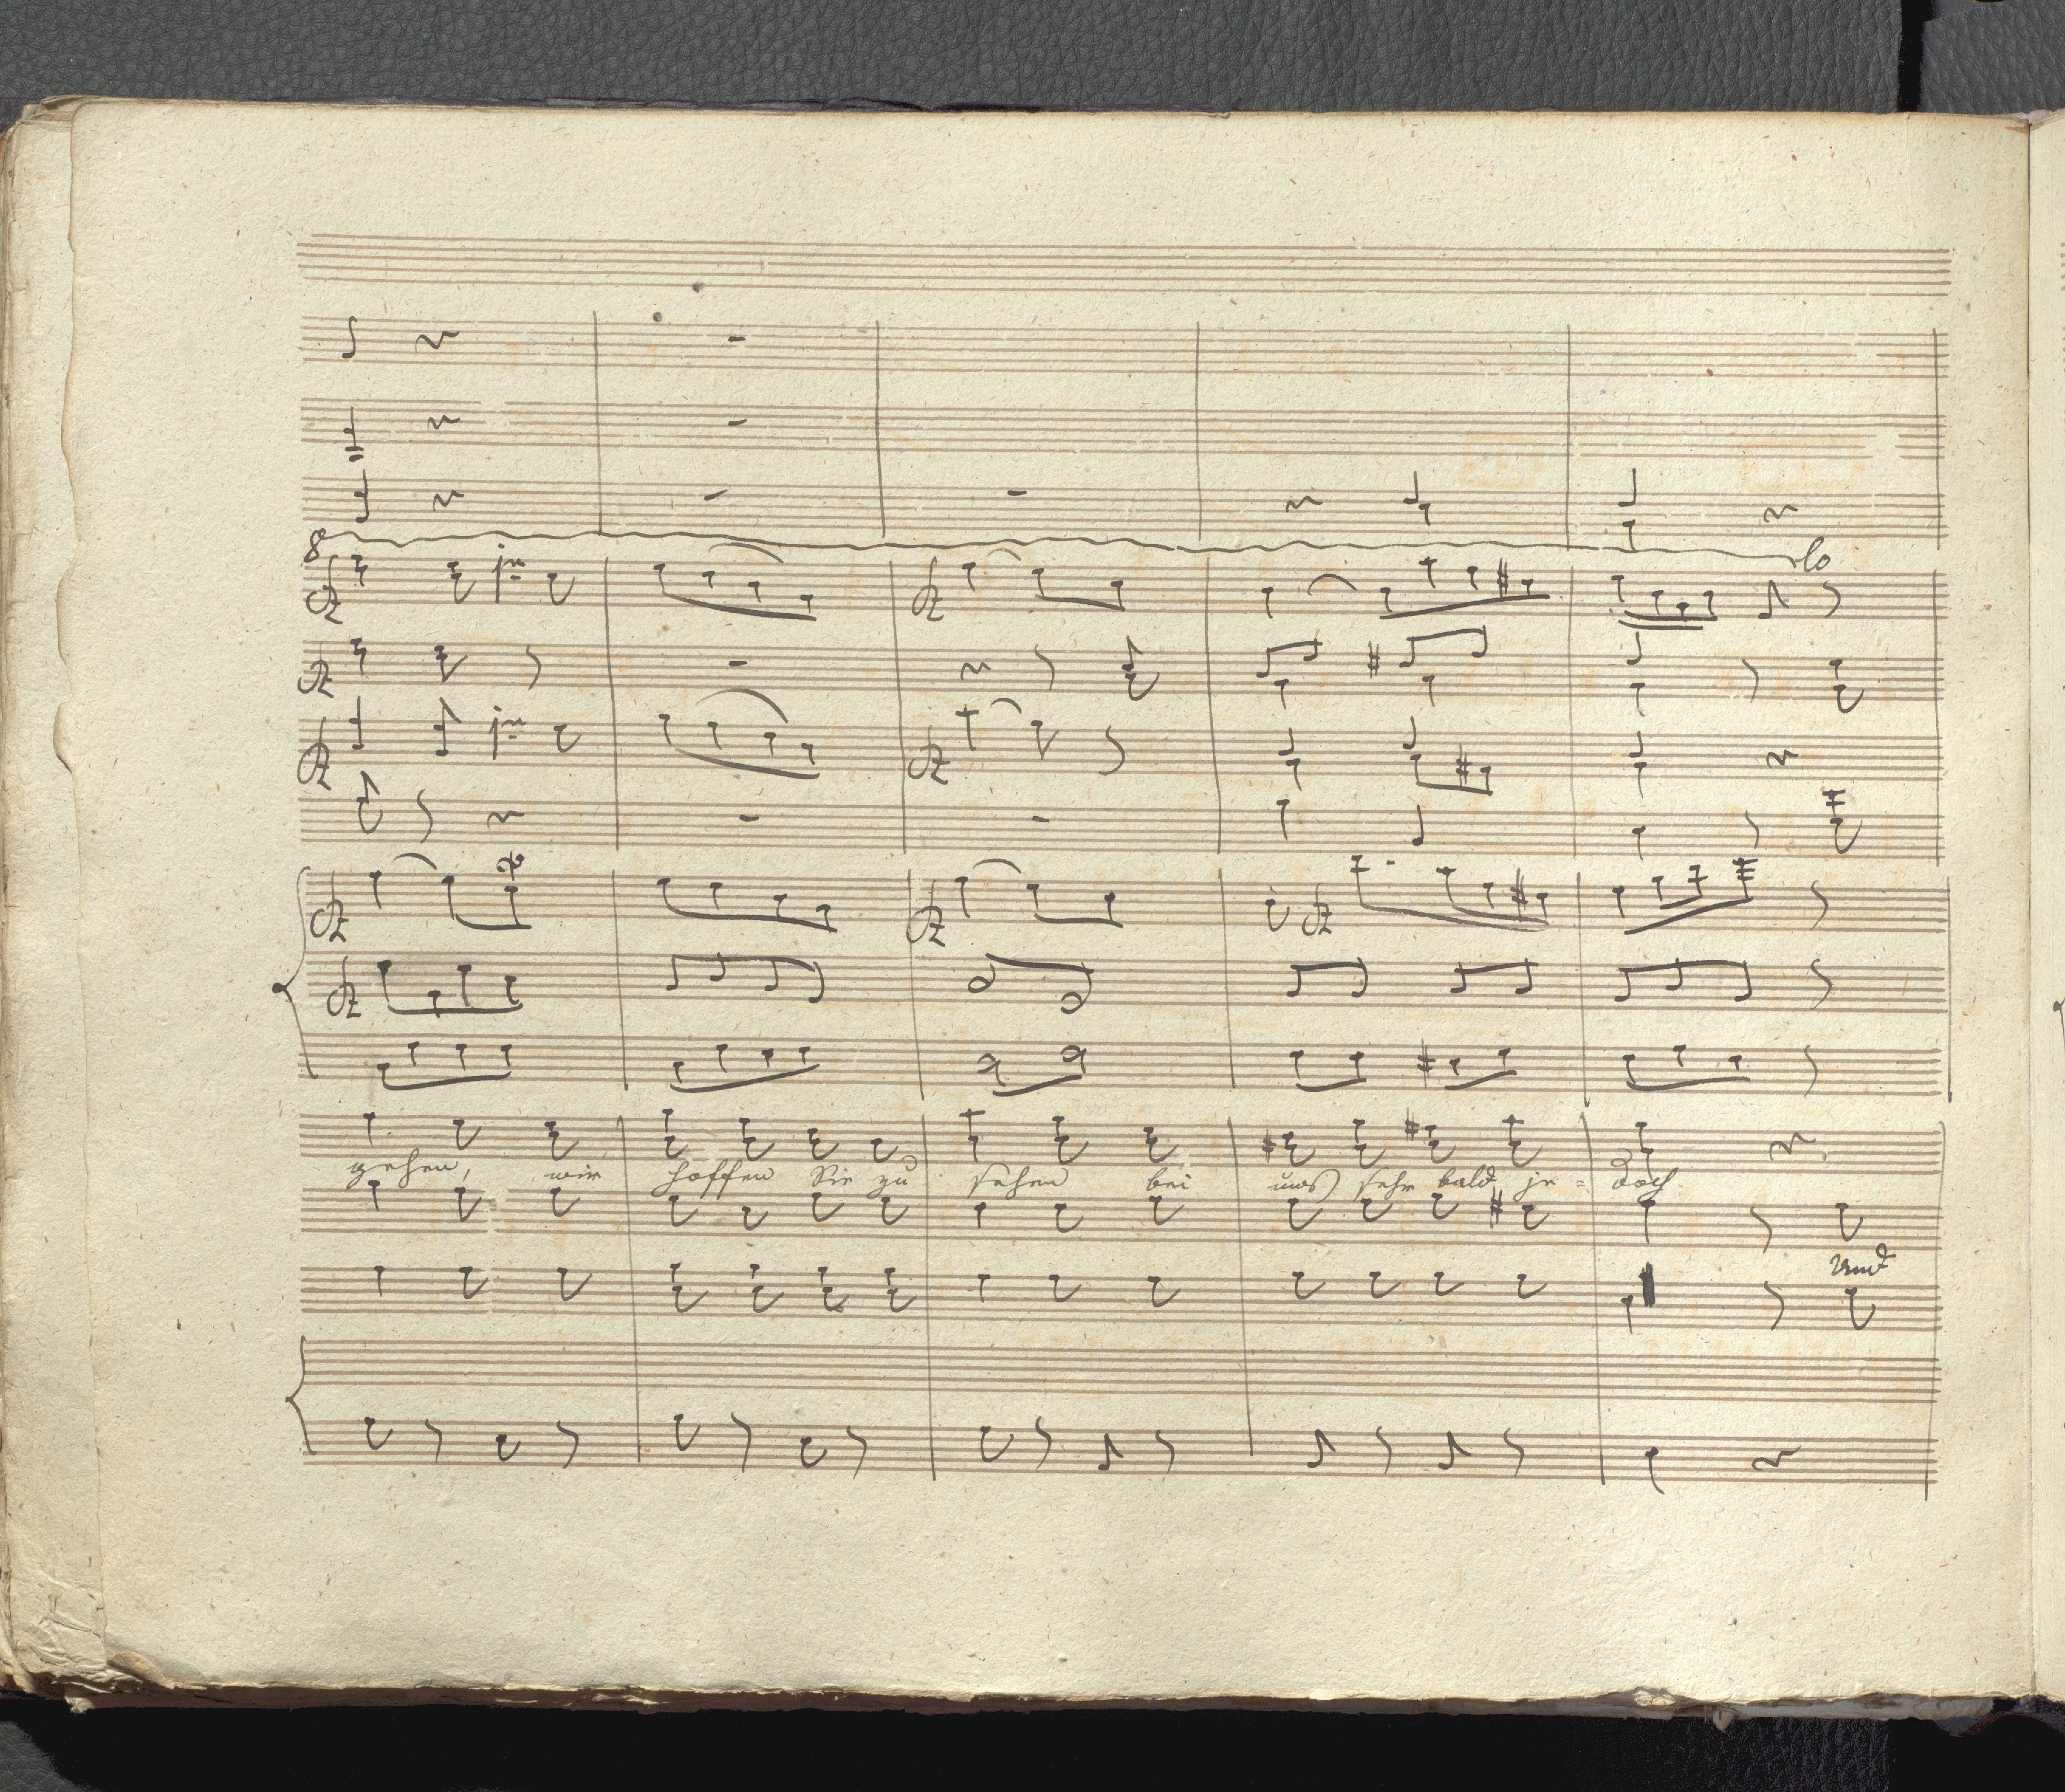 8 lo
gehen, wir hoffen Sie zu sehen bei uns sehr bald, je = doch.
und